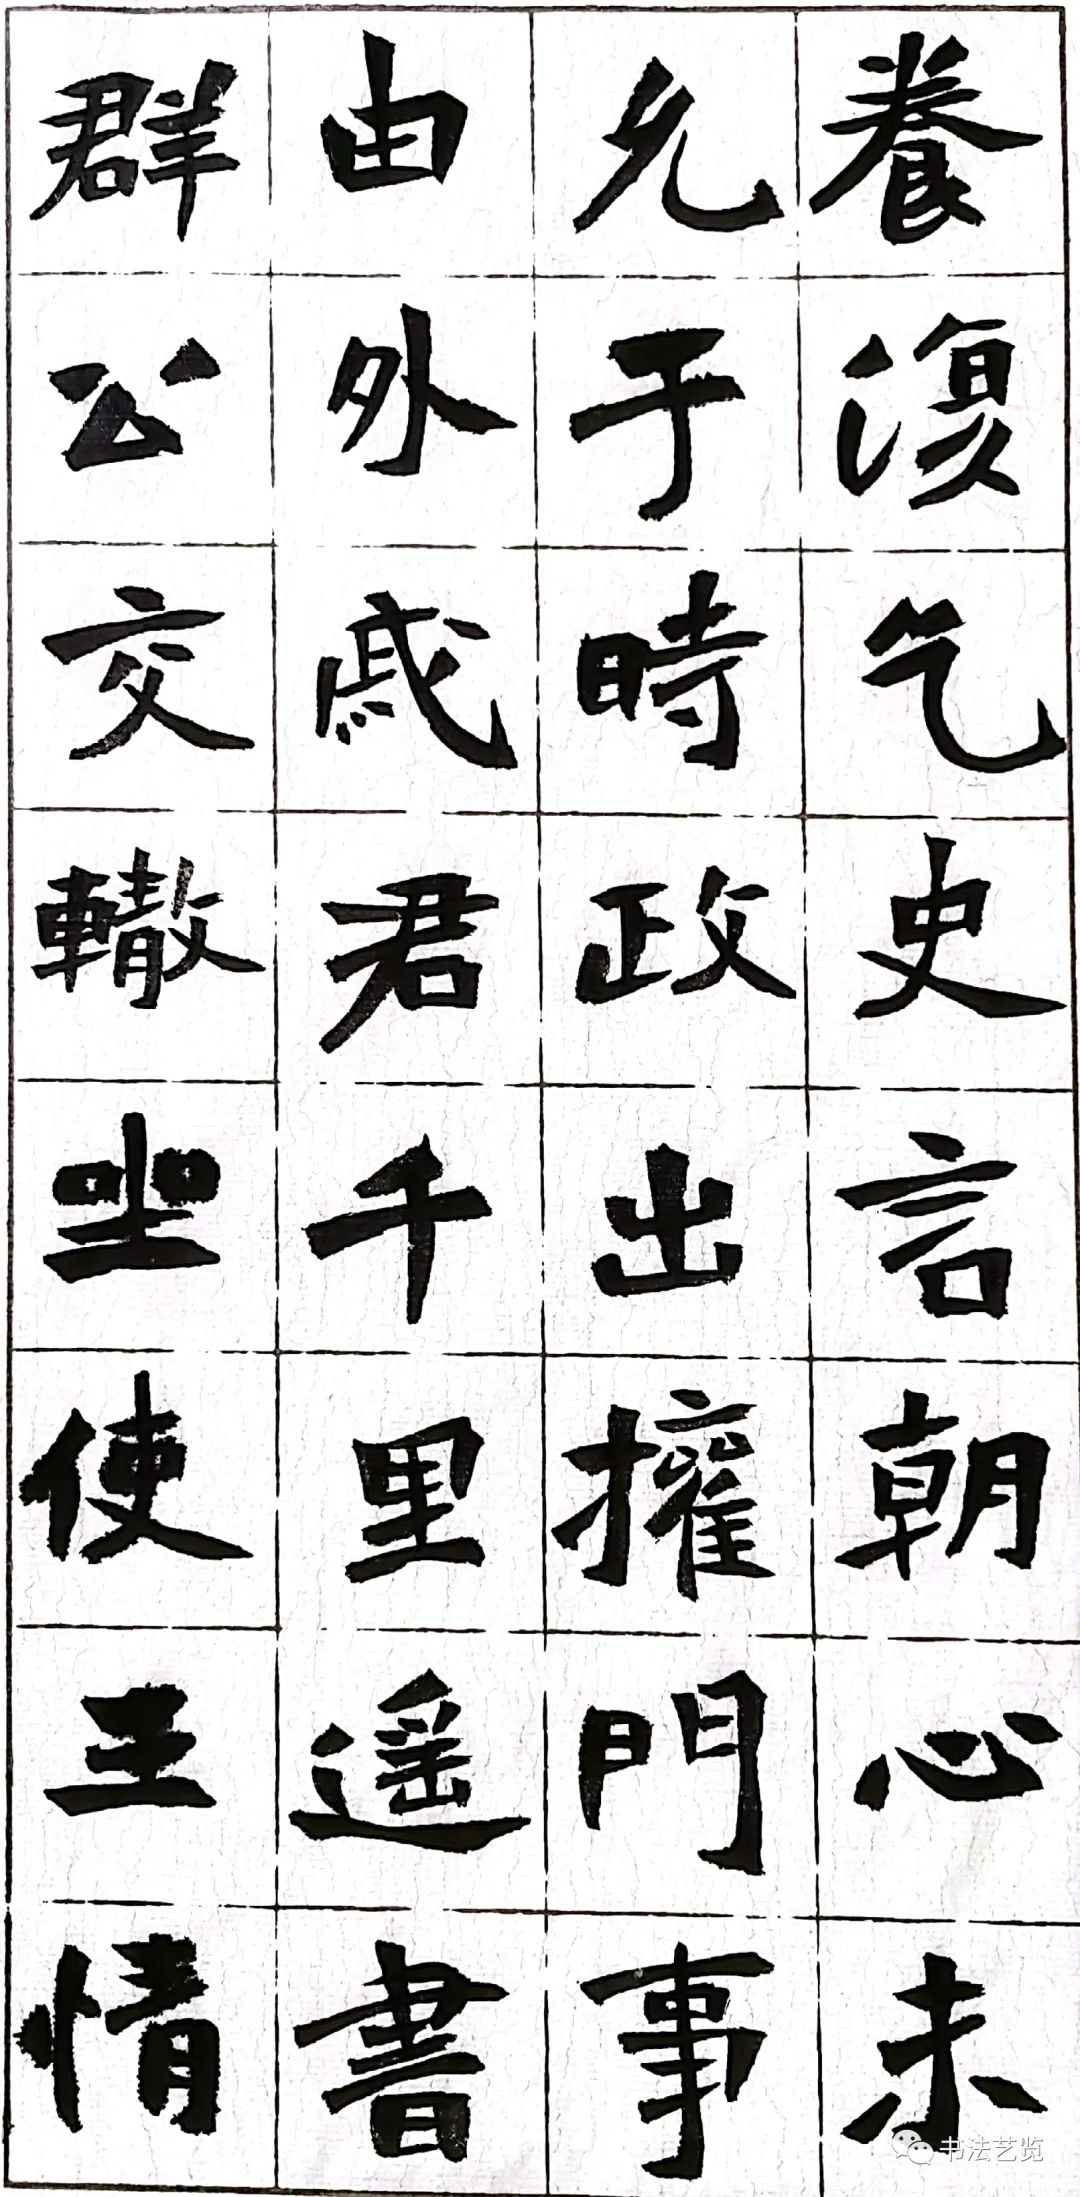 養復乞史言朝心未
允于時政出擁門事
由外戚君千里遥書
群公交轍坐使王情
书法艺览